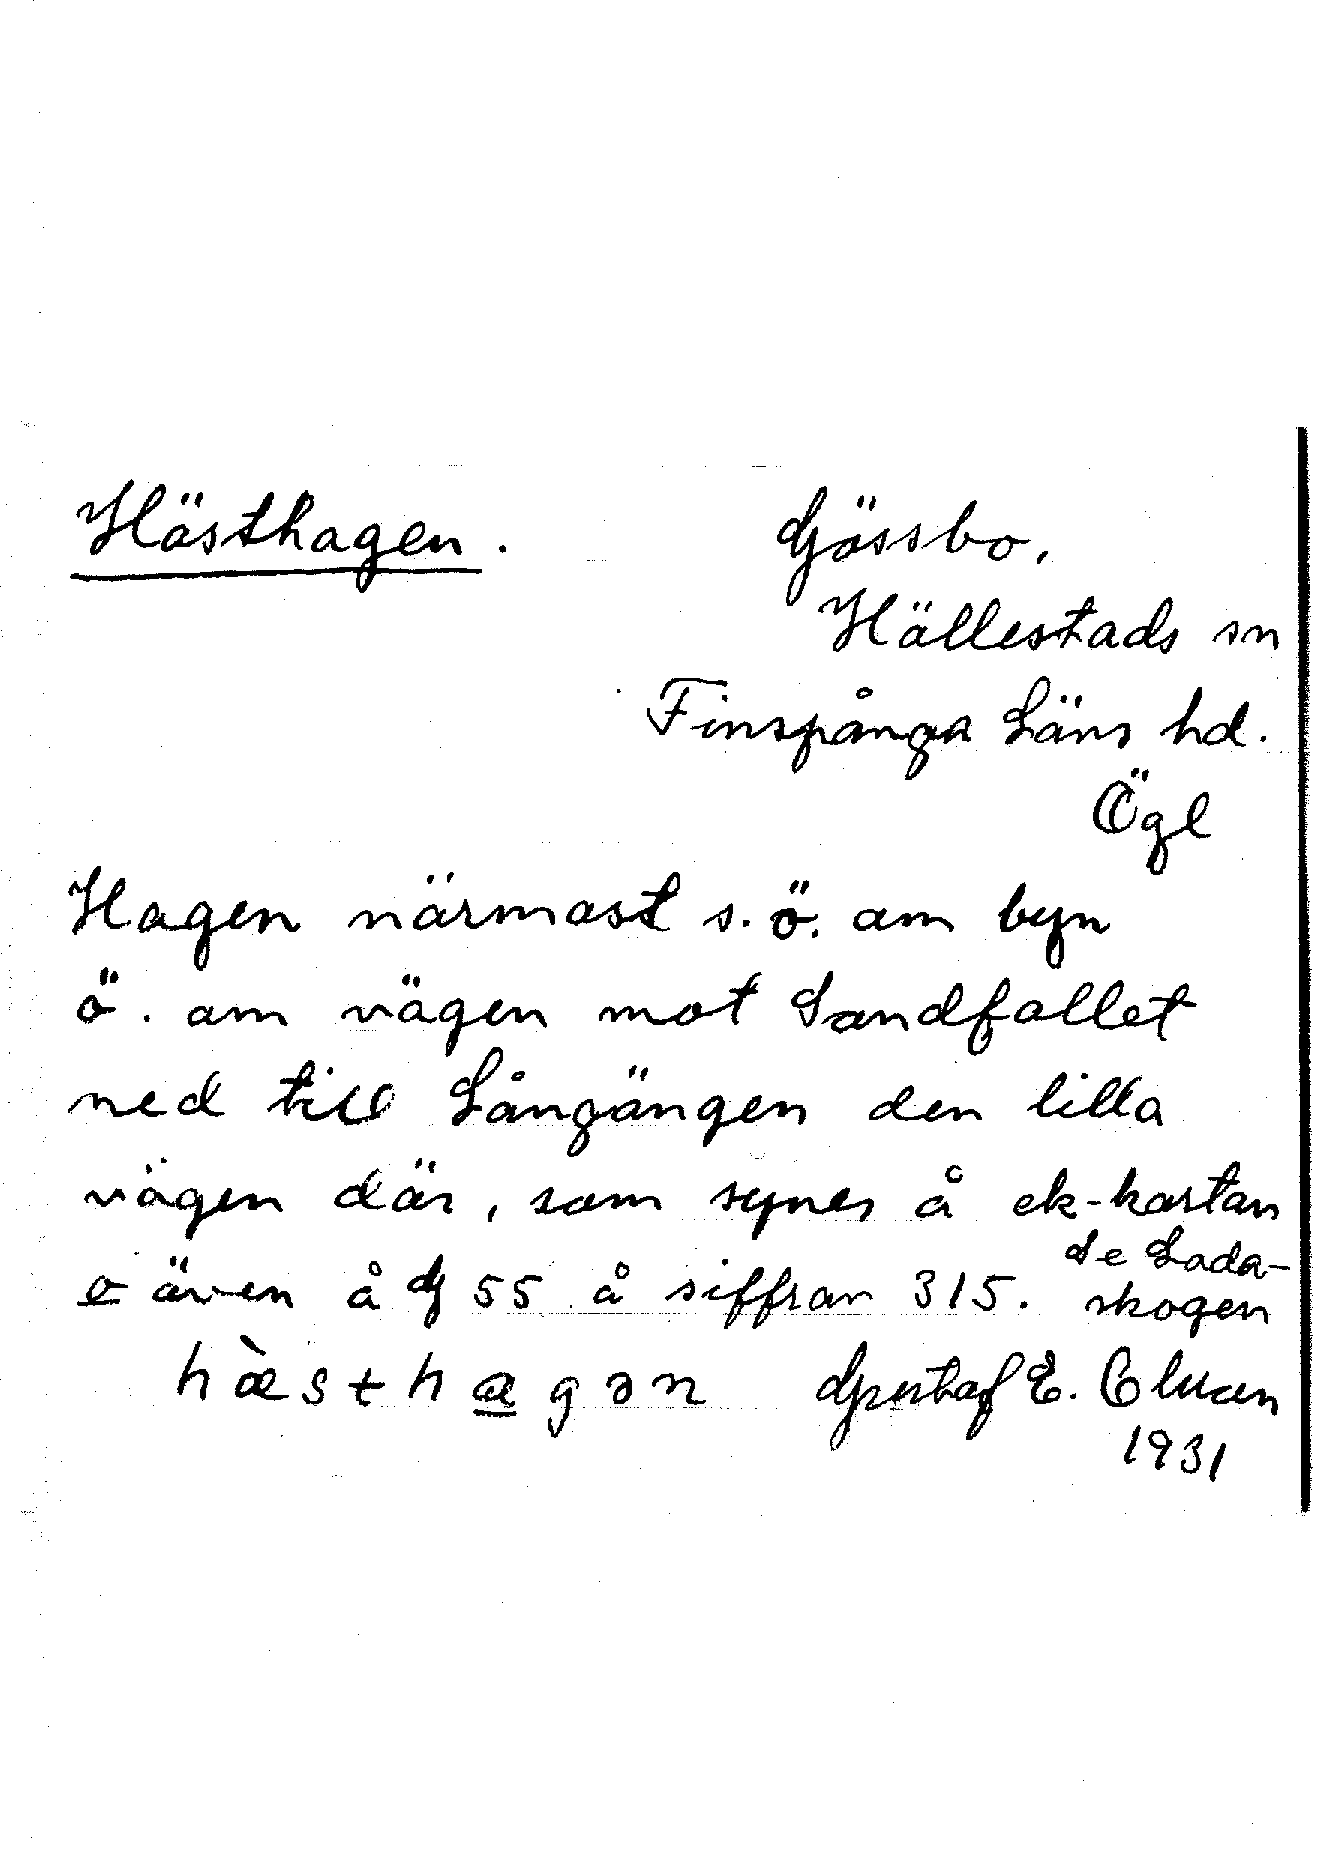 Hästhagen.
Gössbo,
Hällestads sn
Finspånga Läns hd.
Ögl
Hagen närmast s.ö. om byn
ö. om vägen mot Sandfallet
ned till Långängen den lilla
vägen där, som synes å ek-kartan
o även å G 55 å siffran 315.
Se Lada-
skogen
hàsthagən
Gustaf E.
1931